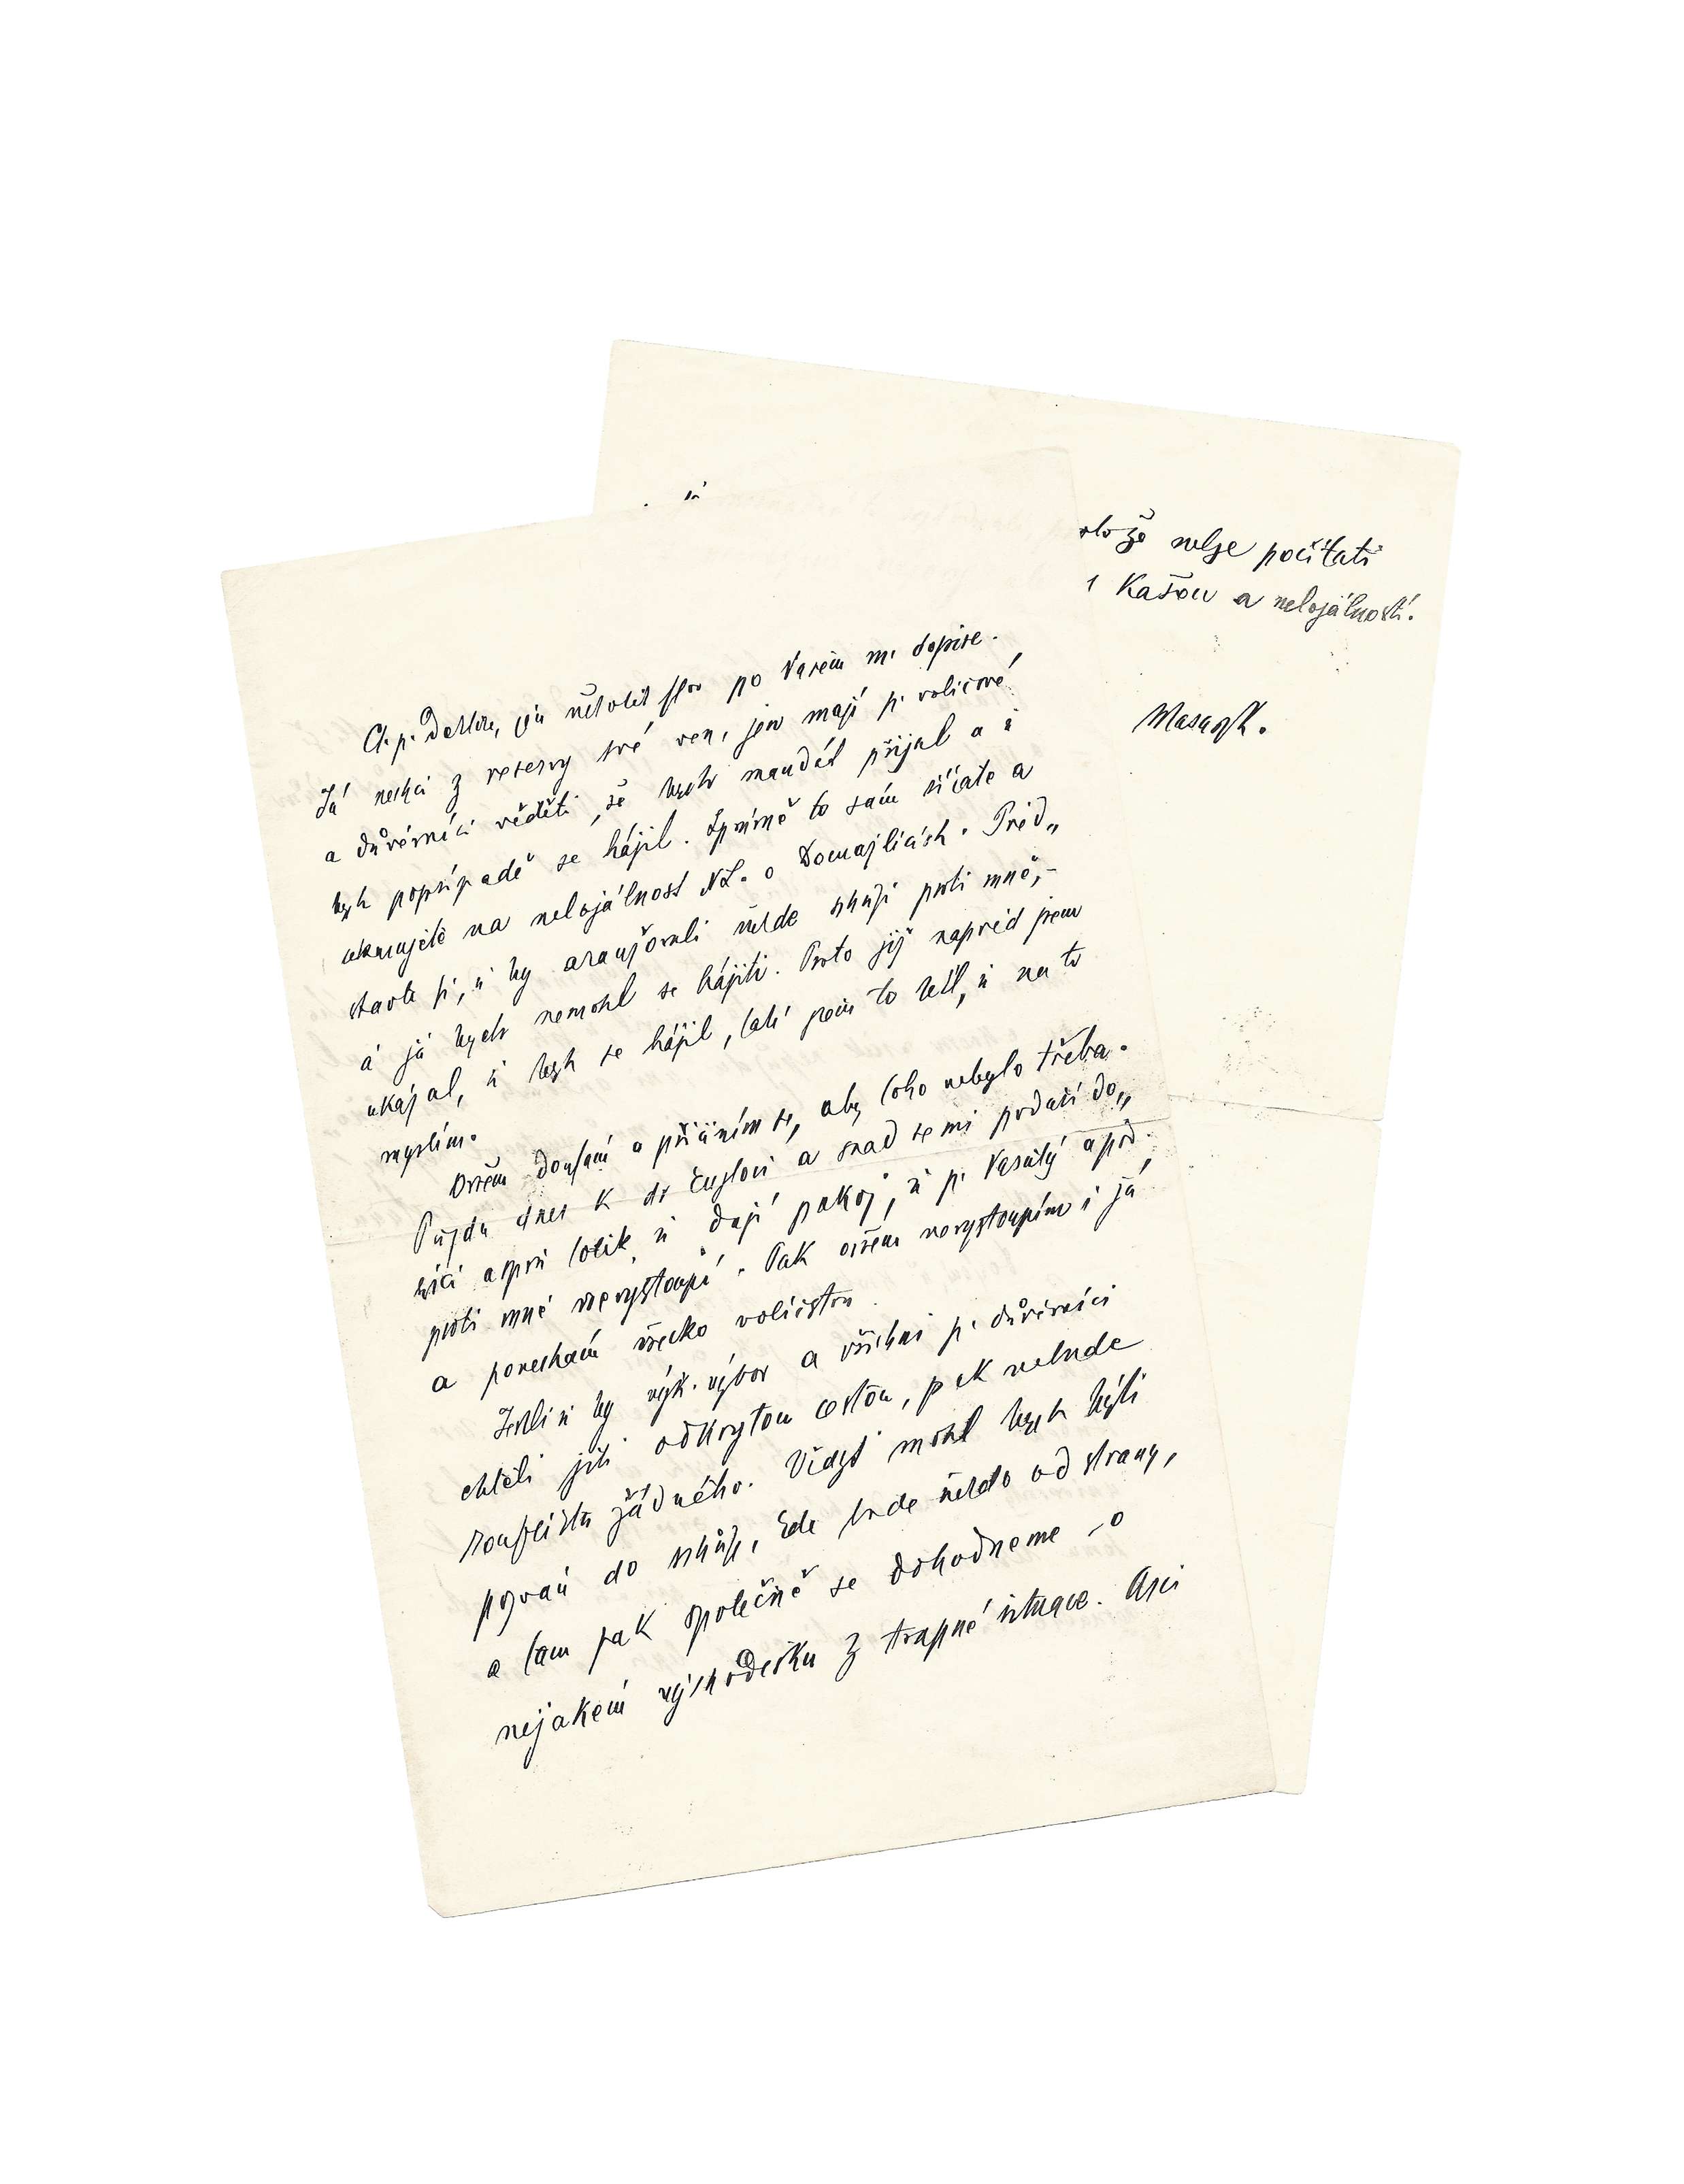 Ct. p. Doktore, jen několik slov po Vašem mi dopise.
Já nechci z reservy své ven, jen mají p. voličové
a důvěrníci věděti, že bych mandát přijal a i
bych popřípadě se hájil. Správně to sám cítíte a
ukazujete na nelojálnost NL. o Domažlicích. Před„
stavte si, že by aranžovali někde schůzi proti mně,-
a já bych nemohl se hájiti. Proto již napřed jsem
ukázal, že bych se hájil, také jsem to řekl, že na to
myslím.
Ovšem doufám a přičiním se, aby toho nebylo třeba.
Půjdu dnes k dr Englovi a snad se mi podaří do„
cíliti aspoň tolik, že dají pokoj, že p. Vasatý a pod.
proti mně nevystoupí. Pak ovšem nevystoupím i já
a ponechám všecko voličstvu.
Jestliže by výk. výbor a všichni p. důvěrníci
chtěli jíti odkrytou cestou, pak nebude
soupeřství žádného. Vždyť mohl bych býti
pozván do schůze, kde bude někdo od strany,
a tam pak společně se dohodneme o
nějakém východisku z trapné situace.
nelze počítati
Kašou a nelojálností.
Masaryk.